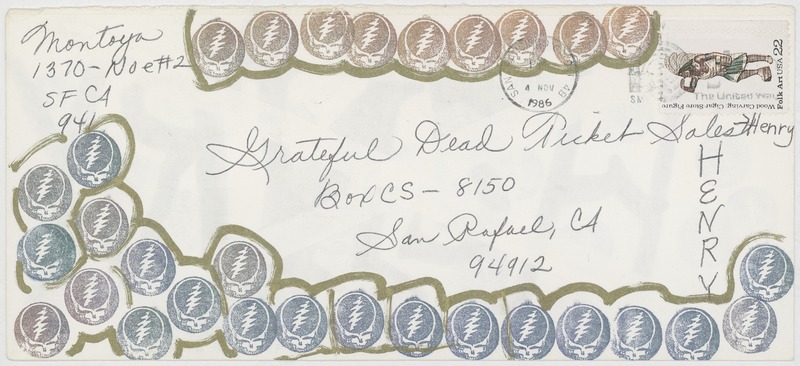 Montoya
1370-Noe#2
SF CA
941
SAN
4 NOV
1986
The United Way
Folk Art USA 22
Wood Carving: Cigar-Store Figure
Grateful Dead Ticket Sales
Henry
HENRY
Box CS - 8150
San Rafael, CA
94912